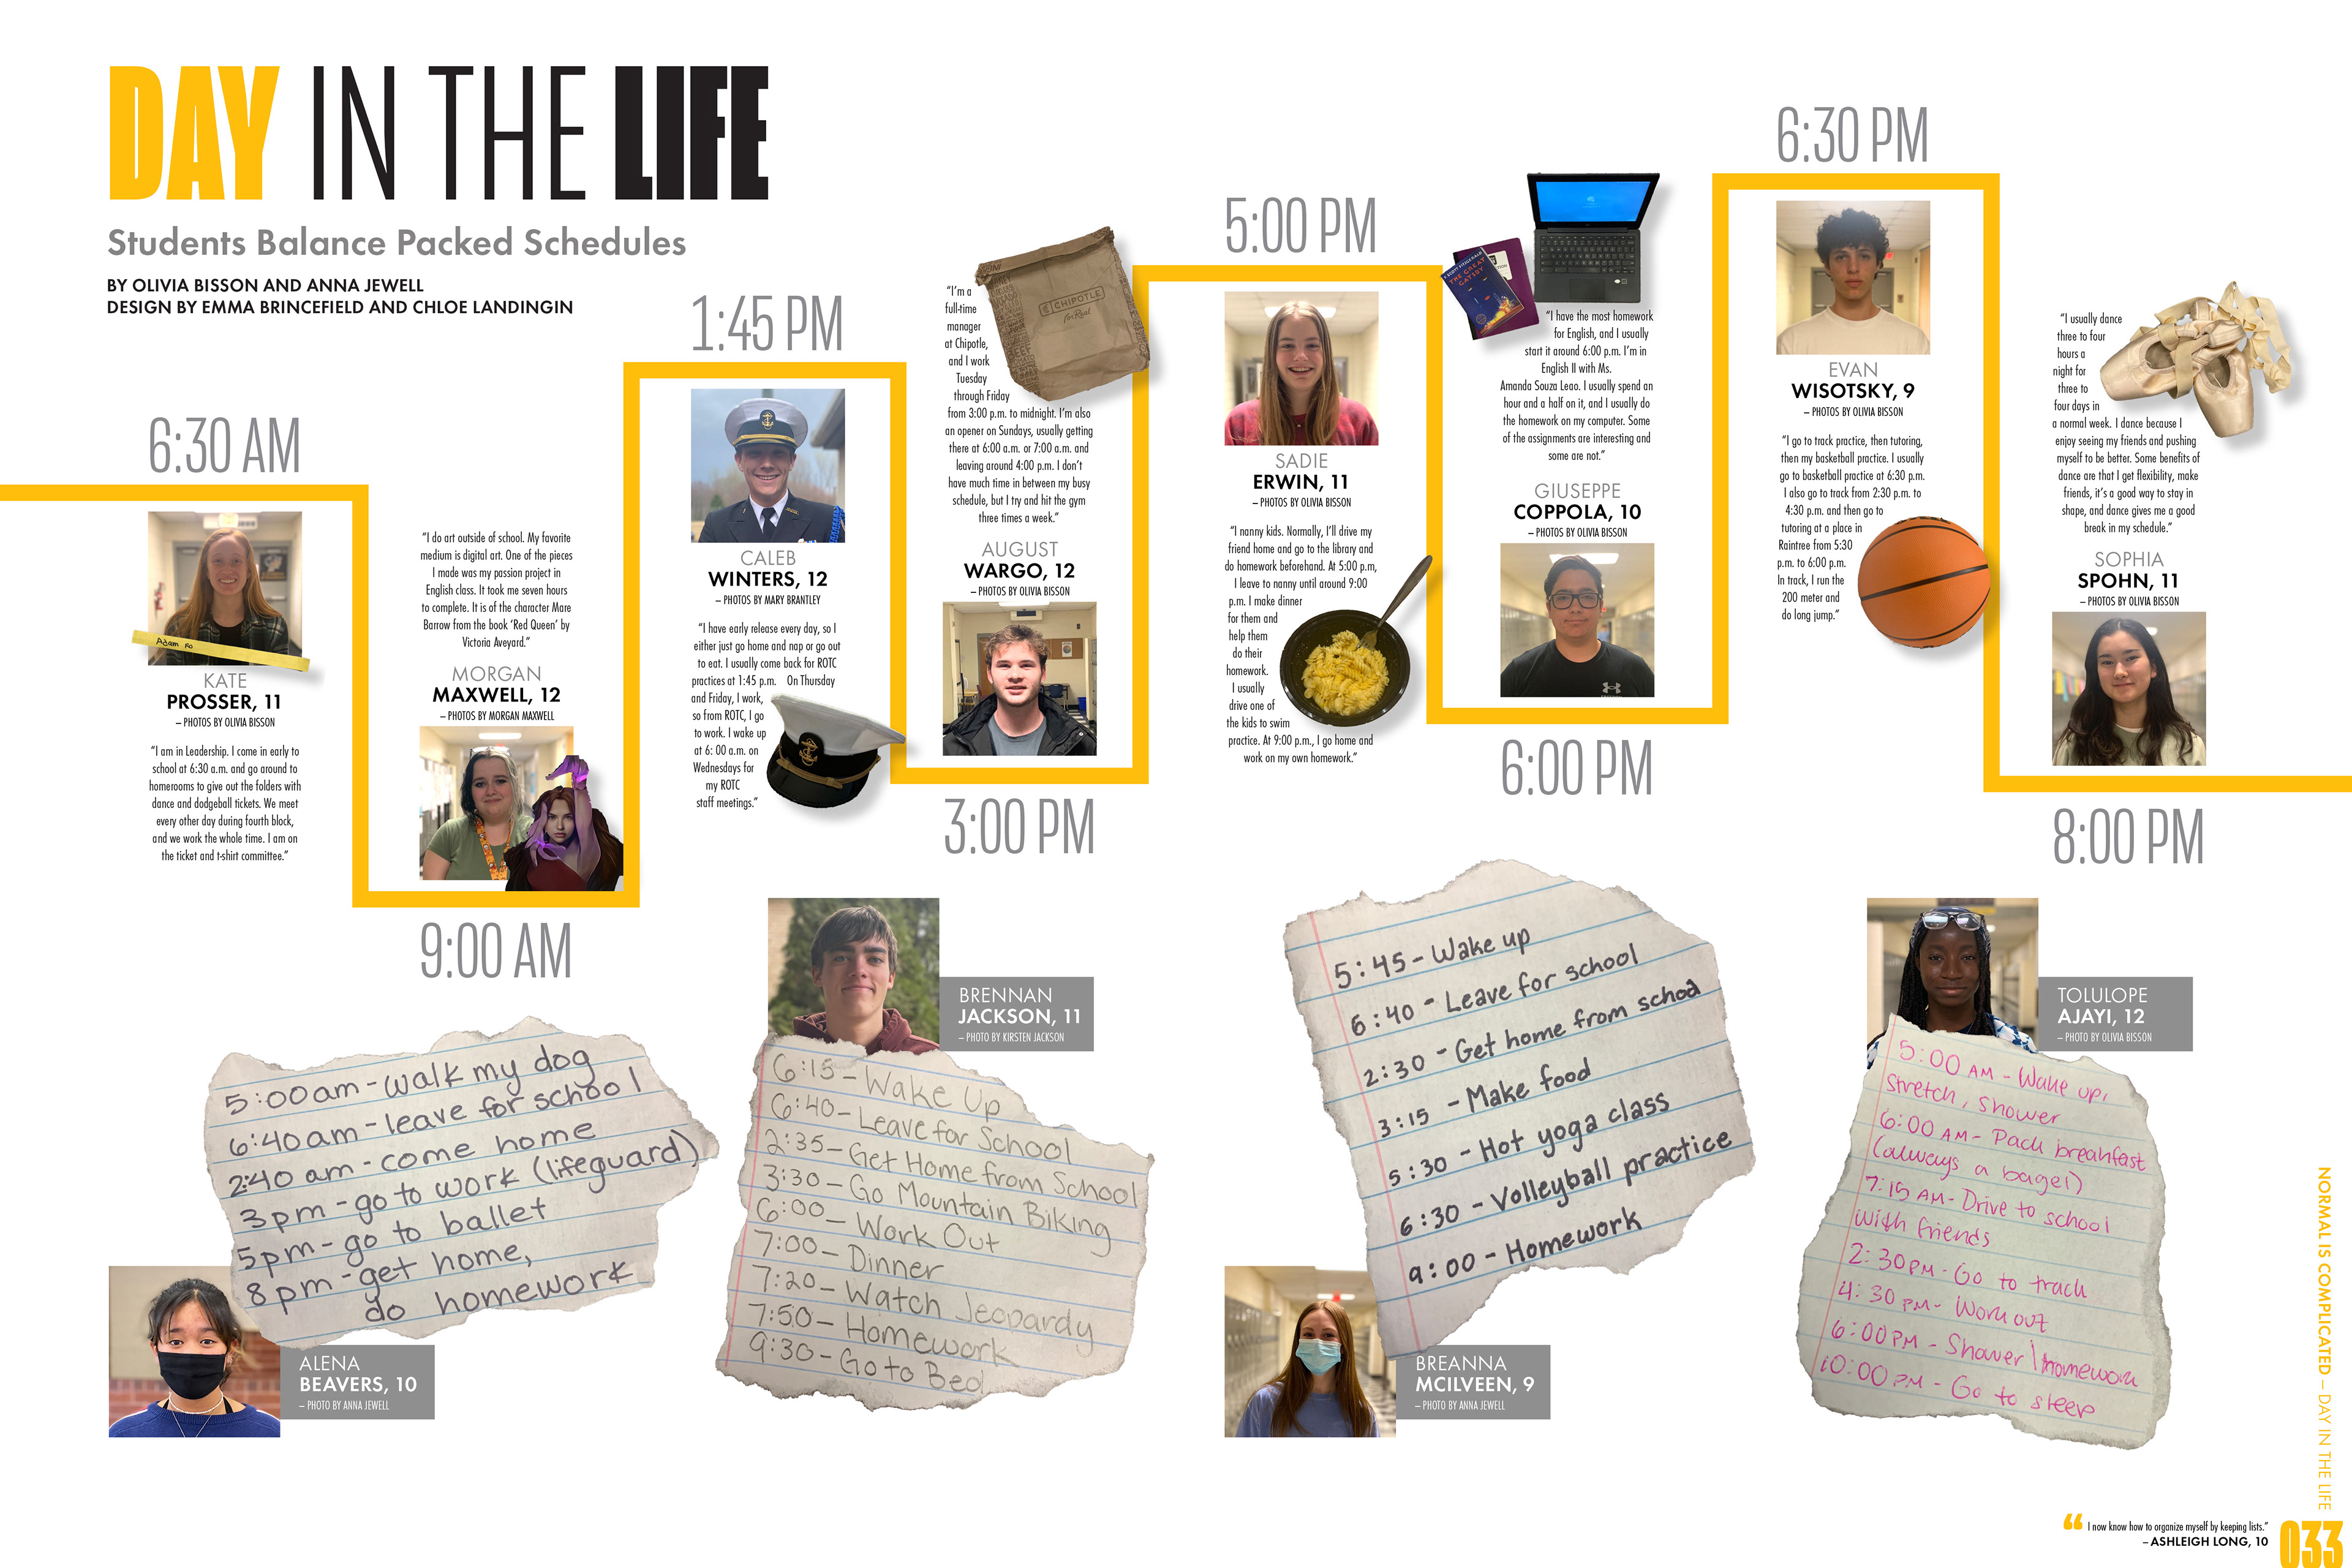 DAY IN THE LIFE
Students Balance Packed Schedules
BY OLIVIA BISSON AND ANNA JEWELL
DESIGN BY EMMA BRINCEFIELD AND CHLOE LANDINGIN
6:30 AM
Adam Ro
KATE
PROSSER, 11
– PHOTOS BY OLIVIA BISSON
“I am in Leadership. I come in early to
school at 6:30 a.m. and go around to
homerooms to give out the folders with
dance and dodgeball tickets. We meet
every other day during fourth block,
and we work the whole time. I am on
the ticket and t-shirt committee.”
“I do art outside of school. My favorite
medium is digital art. One of the pieces
I made was my passion project in
English class. It took me seven hours
to complete. It is of the character Mare
Barrow from the book ‘Red Queen’ by
Victoria Aveyard.”
MORGAN
MAXWELL, 12
– PHOTOS BY MORGAN MAXWELL
9:00 AM
1:45 PM
CALEB
WINTERS, 12
– PHOTOS BY MARY BRANTLEY
“I have early release every day, so I
either just go home and nap or go out
to eat. I usually come back for ROTC
practices at 1:45 p.m. On Thursday
and Friday, I work,
so from ROTC, I go
to work. I wake up
at 6: 00 a.m. on
Wednesdays for
my ROTC
staff meetings.”
“I’m a
full-time
manager
at Chipotle,
and I work
Tuesday
through Friday
from 3:00 p.m. to midnight. I’m also
an opener on Sundays, usually getting
there at 6:00 a.m. or 7:00 a.m. and
leaving around 4:00 p.m. I don’t
have much time in between my busy
schedule, but I try and hit the gym
three times a week.”
CHIPOTLE
for Real
AUGUST
WARGO, 12
– PHOTOS BY OLIVIA BISSON
3:00 PM
5:00 PM
SADIE
ERWIN, 11
– PHOTOS BY OLIVIA BISSON
“I nanny kids. Normally, I’ll drive my
friend home and go to the library and
do homework beforehand. At 5:00 p.m,
I leave to nanny until around 9:00
p.m. I make dinner
for them and
help them
do their
homework.
I usually
drive one of
the kids to swim
practice. At 9:00 p.m., I go home and
work on my own homework.”
THE GREAT
GATSBY
“I have the most homework
for English, and I usually
start it around 6:00 p.m. I’m in
English II with Ms.
Amanda Souza Leao. I usually spend an
hour and a half on it, and I usually do
the homework on my computer. Some
of the assignments are interesting and
some are not.”
GIUSEPPE
COPPOLA, 10
– PHOTOS BY OLIVIA BISSON
6:00 PM
6:30 PM
EVAN
WISOTSKY, 9
– PHOTOS BY OLIVIA BISSON
“I go to track practice, then tutoring,
then my basketball practice. I usually
go to basketball practice at 6:30 p.m.
I also go to track from 2:30 p.m. to
4:30 p.m. and then go to
tutoring at a place in
Raintree from 5:30
p.m. to 6:00 p.m.
In track, I run the
200 meter and
do long jump.”
“I usually dance
three to four
hours a
night for
three to
four days in
a normal week. I dance because I
enjoy seeing my friends and pushing
myself to be better. Some benefits of
dance are that I get flexibility, make
friends, it’s a good way to stay in
shape, and dance gives me a good
break in my schedule.”
SOPHIA
SPOHN, 11
– PHOTOS BY OLIVIA BISSON
8:00 PM
5:00am - walk my dog
6:40am - leave for school
2:40 am - come home
3pm - go to work (lifeguard)
5pm - go to ballet
8pm - get home,
do homework
ALENA
BEAVERS, 10
– PHOTO BY ANNA JEWELL
BRENNAN
JACKSON, 11
– PHOTO BY KIRSTEN JACKSON
6:15 - Wake Up
6:40 - Leave for School
2:35 - Get Home from School
3:30 - Go Mountain Biking
6:00 - Work Out
7:00 - Dinner
7:20 - Watch Jeopardy
7:50 - Homework
9:30 - Go to Bed
5:45 - Wake up
6:40 - Leave for school
2:30 - Get home from school
3:15 - Make food
5:30 - Hot yoga class
6:30 - Volleyball practice
9:00 - Homework
BREANNA
MCILVEEN, 9
– PHOTO BY ANNA JEWELL
TOLULOPE
AJAYI, 12
– PHOTO BY OLIVIA BISSON
5:00 AM - Wake up,
Stretch, Shower
6:00 AM - Pack breakfast
(always a bagel)
7:15 AM - Drive to school
with friends
2:30PM - Go to track
4:30 PM - Work out
6:00PM - Shower | Homework
10:00 PM - Go to sleep
NORMAL IS COMPLICATED – DAY IN THE LIFE
“ I now know how to organize myself by keeping lists.”
– ASHLEIGH LONG, 10
033